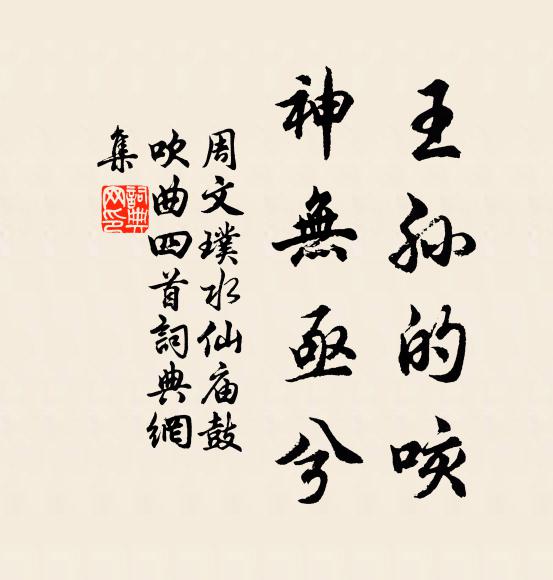 王孙的咳
神無亟兮
周文璞水仙庙鼓
吹曲四首詞典網
集
詞典
网印